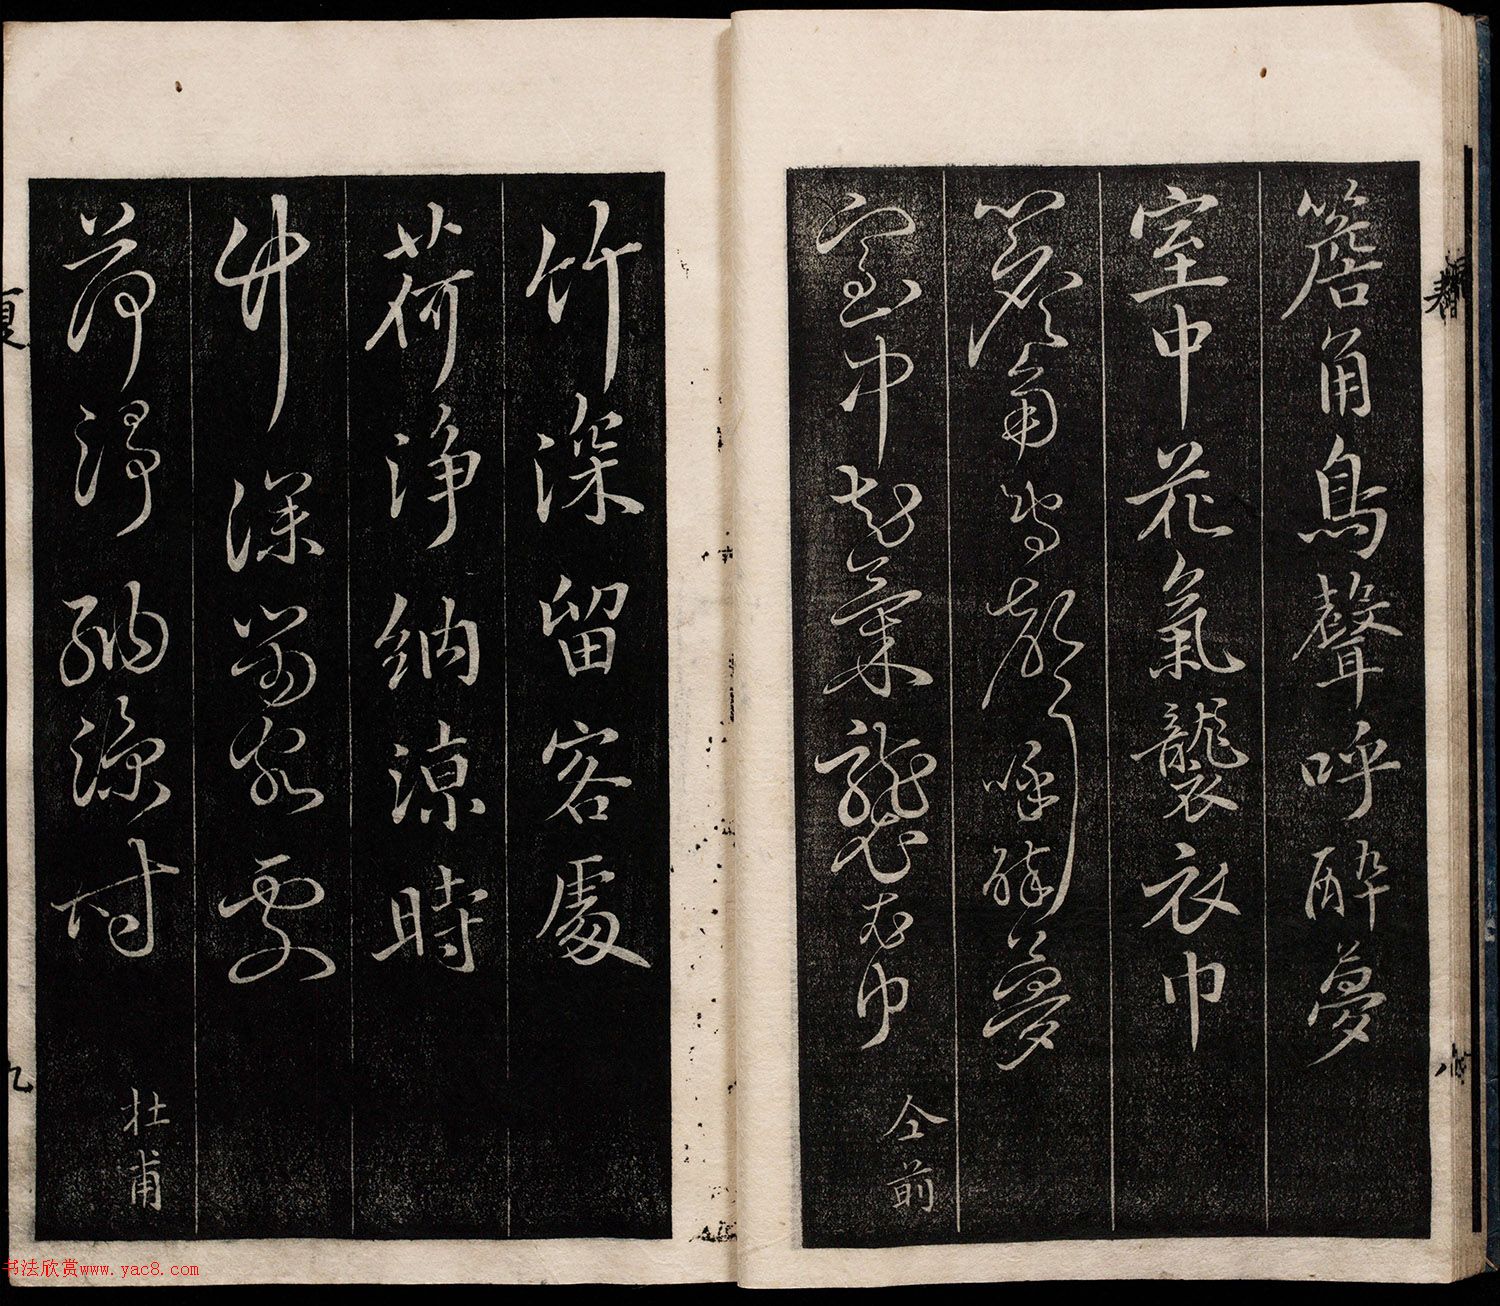 簷角鳥聲呼醉夢
室中花氣襲衣巾
簷角鳥聲呼醉夢
室中花氣襲衣巾
仝前
竹深留客處
荷淨納涼時
竹深留客處
荷淨納涼時
杜甫
春
夏
九
书法欣赏www.yac8.com